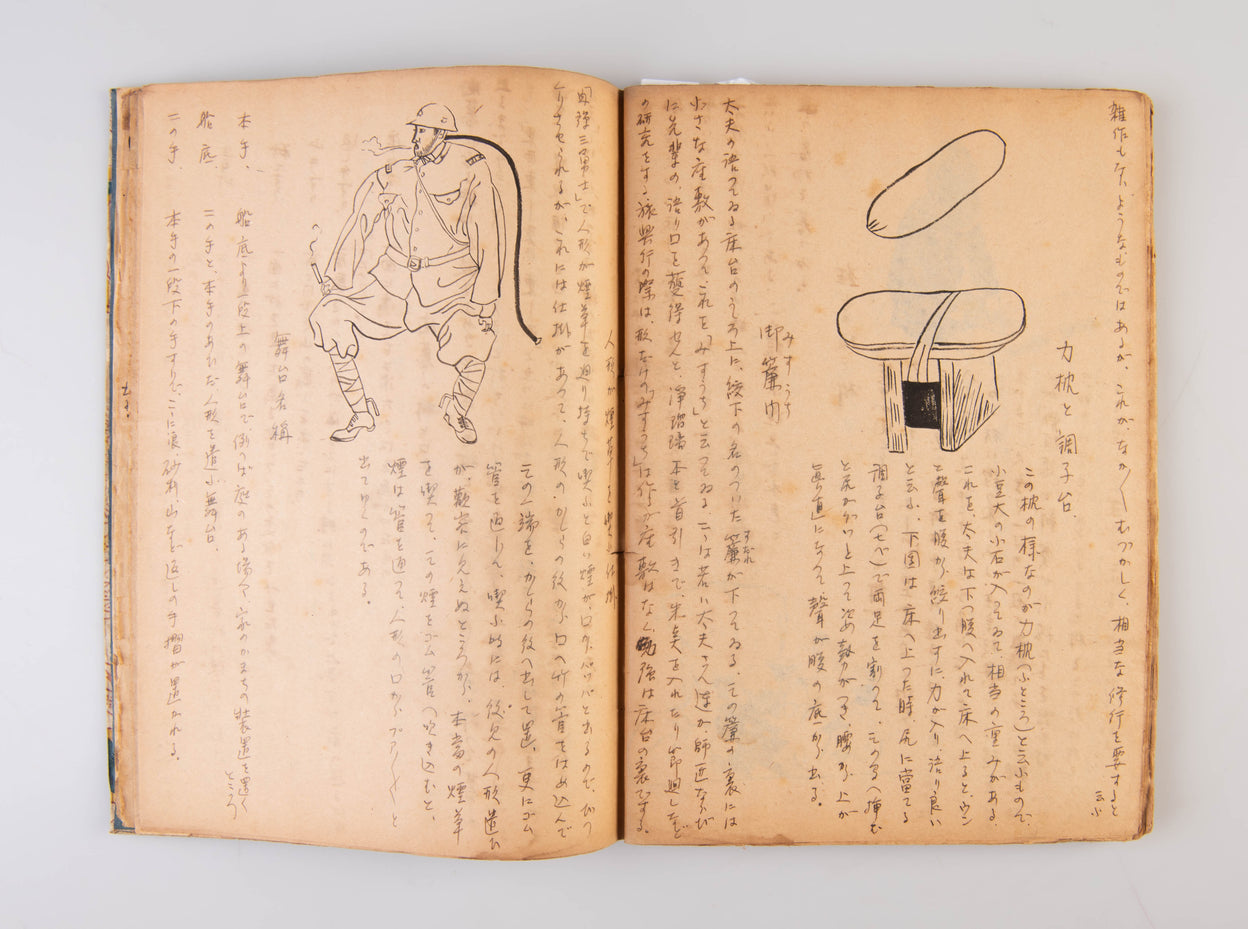 雑作もないようなものではあるが、これが、なか〱むづかしく、相当な修行を要すると
云ふ
力枕と調子台、
この枕の様なのが力枕(ふところ)と云ふもので、
小豆大の小石が入つてゐて、相当の重みがある。
これを、太夫は下つ腹へ入れて床へ上ると、ウン
と聲を腹から絞り出すに、力が入り、語り良い
と云ふ、下図は、床へ上つた時、尻に當てる
調子台(七べ)で両足を割つて、その間へ挿む
と尻がグイと上つて姿勢がつき、腰から上が
真直になつて聲が腹の底から出る。
みすうち
御簾内
太夫の語つてゐる床台のうしろ上に、紋下の名のついた簾が下つてゐる、この簾の裏には
すだれ
小さな座敷があつてこれを「みすうち」と云つてゐる。こゝは若い太夫さん達が、師匠ならび
に先輩の、語り口を習得せんと、浄瑠璃本と首引きで、朱点を入れたり節廻しなど
の研究をする旅興行の際は、形だけの「みすうち」は作るが座敷はなく勉強は床台の裏でする。
人形が煙草を喫ふ仕掛
「肉弾三勇士」で人形が煙草を廻り持ちで喫ふと白い煙が、口から、パッパッと出るので、びつ
くりさせられるが、これには仕掛があつて、人形の、かしらの後から、口へ竹の管をはめ込んで
その一端を、かしらの後へ出して置き、更にゴム
管を通じ、喫ふ時には、後見の人形遣ひ
が、観客に見えぬところから、本当の煙草
を喫つて、その煙をゴム管へ吹き込むと、
煙は管を通つて人形の口からプアー〱と
出てゆくのである。
舞台名稱
本手、 船底より一段上の舞台で、例へば庭のある場で家のかまちの装置を置く
ところ
船底 二の手と、本手のあひだ人形を遣ふ舞台。
二の手、 本手の一段下の手すりで、こゝに浪、砂利、山など返しの手摺が置かれる。